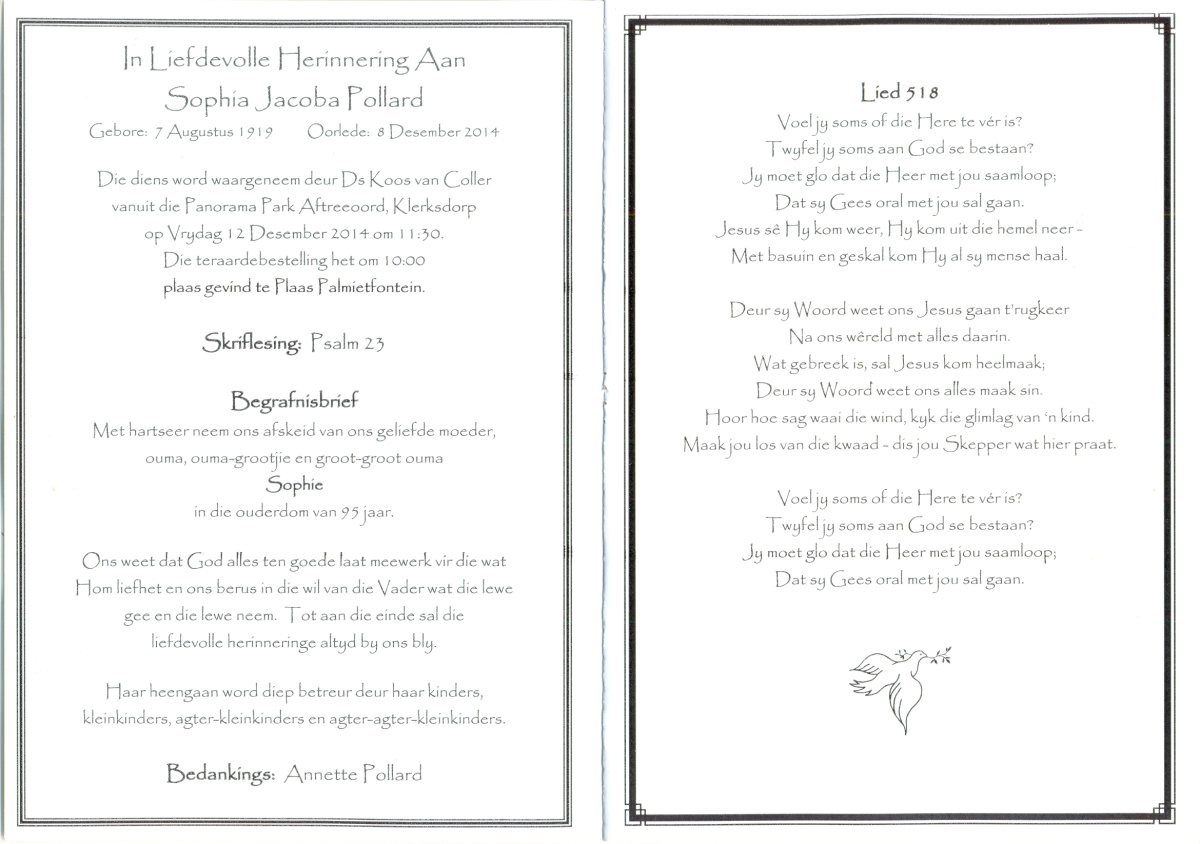 In Liefdevolle Herinnering Aan
Sophia Jacoba Pollard
Gebore: 7 Augustus 1919 Oorlede: 8 Desember 2014
Die diens word waargeneem deur Ds Koos van Coller
vanuit die Panorama Park Aftreeoord, Klerksdorp
op Vrydag 12 Desember 2014 om 11:30.
Die teraardebestelling het om 10:00
plaas gevind te Plaas Palmietfontein.
Skriflesing: Psalm 23
Begrafnisbrief
Met hartseer neem ons afskeid van ons geliefde moeder,
ouma, ouma-grootjie en groot-groot ouma
Sophie
in die ouderdom van 95 jaar.
Ons weet dat God alles ten goede laat meewerk vir die wat
Hom liefhet en ons berus in die wil van die Vader wat die lewe
gee en die lewe neem. Tot aan die einde sal die
liefdevolle herinneringe altyd by ons bly.
Haar heengaan word diep betreur deur haar kinders,
kleinkinders, agter-kleinkinders en agter-agter-kleinkinders.
Bedankings: Annette Pollard
Lied 518
Voel jy soms of die Here te vér is?
Twyfel jy soms aan God se bestaan?
Jy moet glo dat die Heer met jou saamloop;
Dat sy Gees oral met jou sal gaan.
Jesus sê Hy kom weer, Hy kom uit die hemel neer -
Met basuin en geskal kom Hy al sy mense haal.
Deur sy Woord weet ons Jesus gaan t'rugkeer
Na ons wêreld met alles daarin.
Wat gebreek is, sal Jesus kom heelmaak;
Deur sy Woord weet ons alles maak sin.
Hoor hoe sag waai die wind, kyk die glimlag van 'n kind.
Maak jou los van die kwaad - dis jou Skepper wat hier praat.
Voel jy soms of die Here te vér is?
Twyfel jy soms aan God se bestaan?
Jy moet glo dat die Heer met jou saamloop;
Dat sy Gees oral met jou sal gaan.